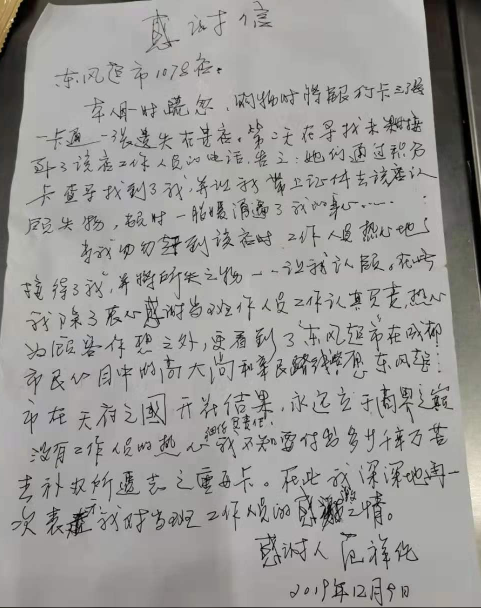 感谢信
东风超市107店:
本人因一时疏忽,购物时将银行卡三张
一卡通一张遗失在其店。第二天在寻找未果时接
到了该店工作人员的电话,告之:她们通过积分
卡查寻找到了我,并让我带上证件去该店认
领失物,顿时一股暖流通遍了我的身心……
当我匆匆赶到该店时,工作人员热心地
接待了我,并将所失之物一一让我认领。在此
我除了衷心感谢当班工作人员工作认真负责,热心
为顾客作想之外,更看到了东风超市在成都
市民心目中的高大尚和亲民 东风超
市在天府之国开花结果,永远立于商界之巅
没有工作人员的热心细仔负责任,我不知要付出多少千辛万苦
去补权所遗志之重要卡。在此我深深地再一
次表示我对当班工作人员的感激之情。
感谢人 范祥
2019年12月9日